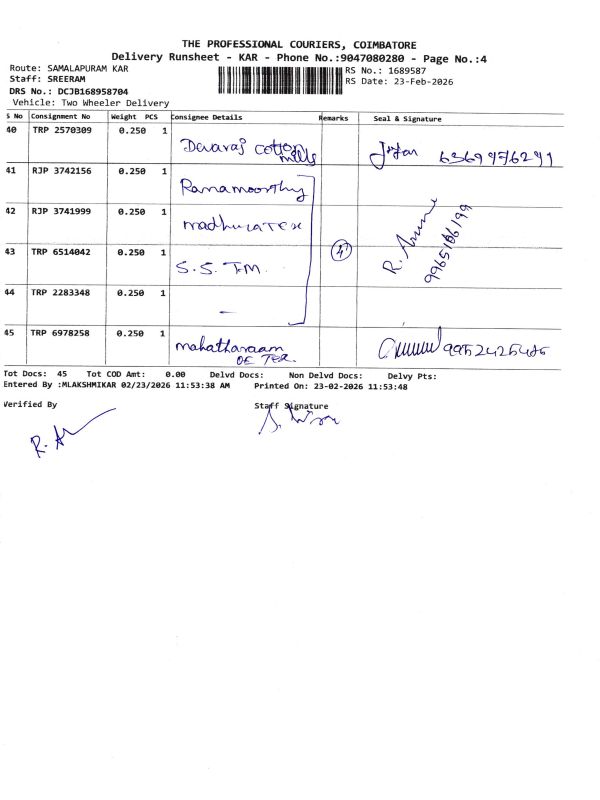 THE PROFESSIONAL COURIERS, COIMBATORE
Delivery Runsheet - KAR - Phone No.:9047080280 - Page No.:4
Route: SAMALAPURAM KAR
RS No.: 1689587
Staff: SREERAM
RS Date: 23-Feb-2026
DRS No.: DCJB168958704
Vehicle: Two Wheeler Delivery
S No Consignment No Weight PCS Consignee Details Remarks Seal & Signature
40 TRP 2570309 0.250 1 Devaraj cotton mills 6369976291
41 RJP 3742156 0.250 1 Ramamoorthy
42 RJP 3741999 0.250 1 madhura Tex
43 TRP 6514042 0.250 1 S.S. T.M. 4 R.
44 TRP 2283348 0.250 1 -
45 TRP 6978258 0.250 1 mahatharaam OE TEX. 9952425485
Tot Docs: 45 Tot COD Amt: 0.00 Delvd Docs: Non Delvd Docs: Delvy Pts:
Entered By :MLAKSHMIKAR 02/23/2026 11:53:38 AM Printed On: 23-02-2026 11:53:48
Verified By Staff Signature